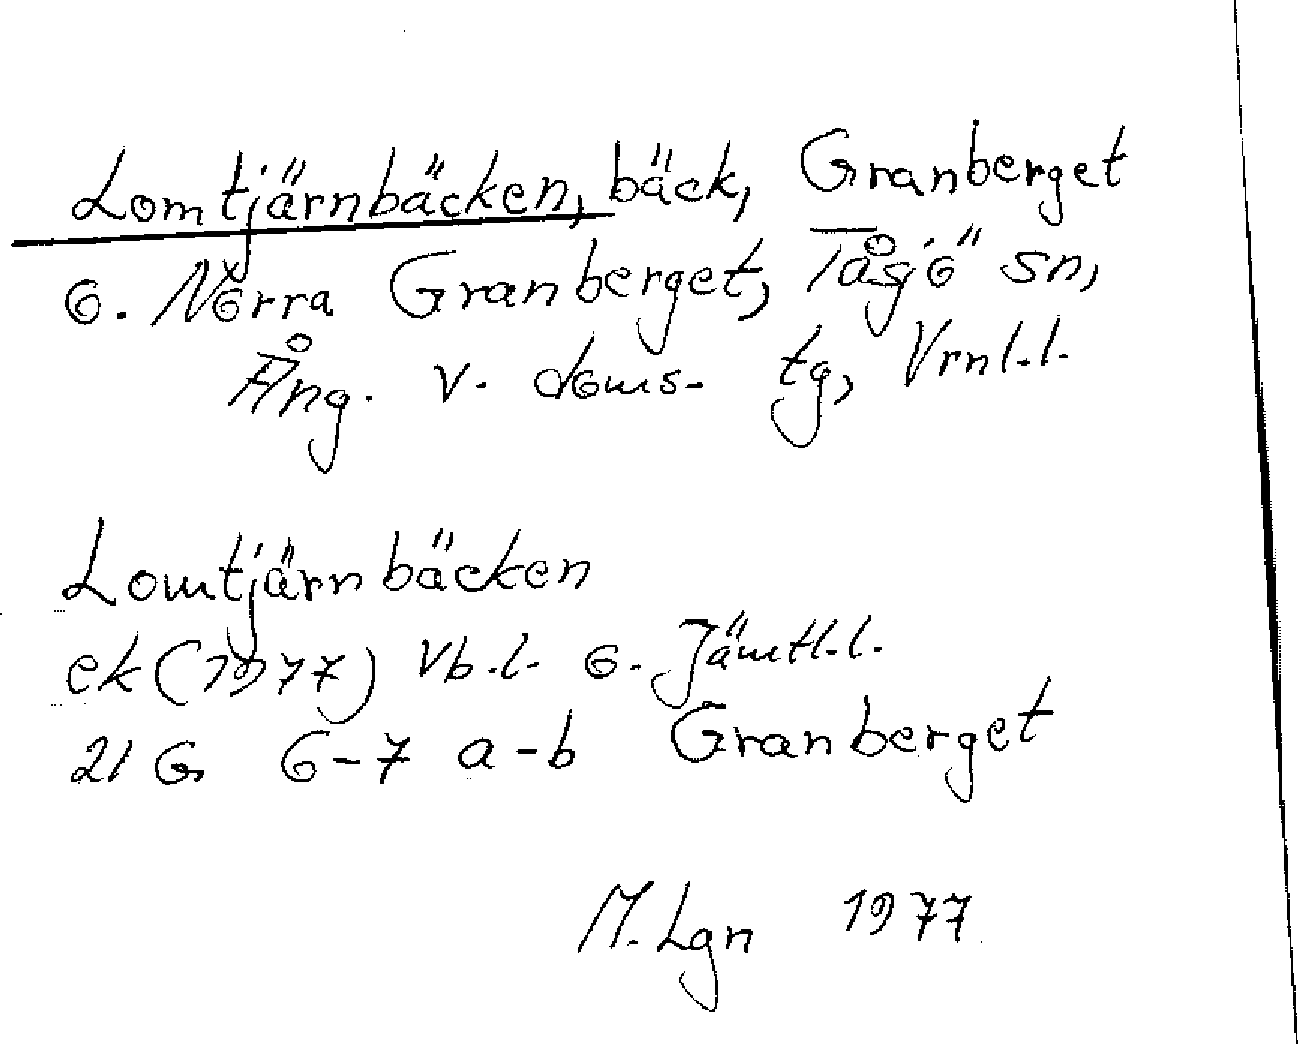 Lomtjärnbäcken, bäck, Granberget
o. Norra Granberget, Tåsjö sn,
Ång. v. doms. tg, Vrnl.l.
Lomtjärnbäcken
ek (1977) Vb.l. o. Jämtl.l.
21 G 6-7 a-b Granberget
M. Lgn 1977